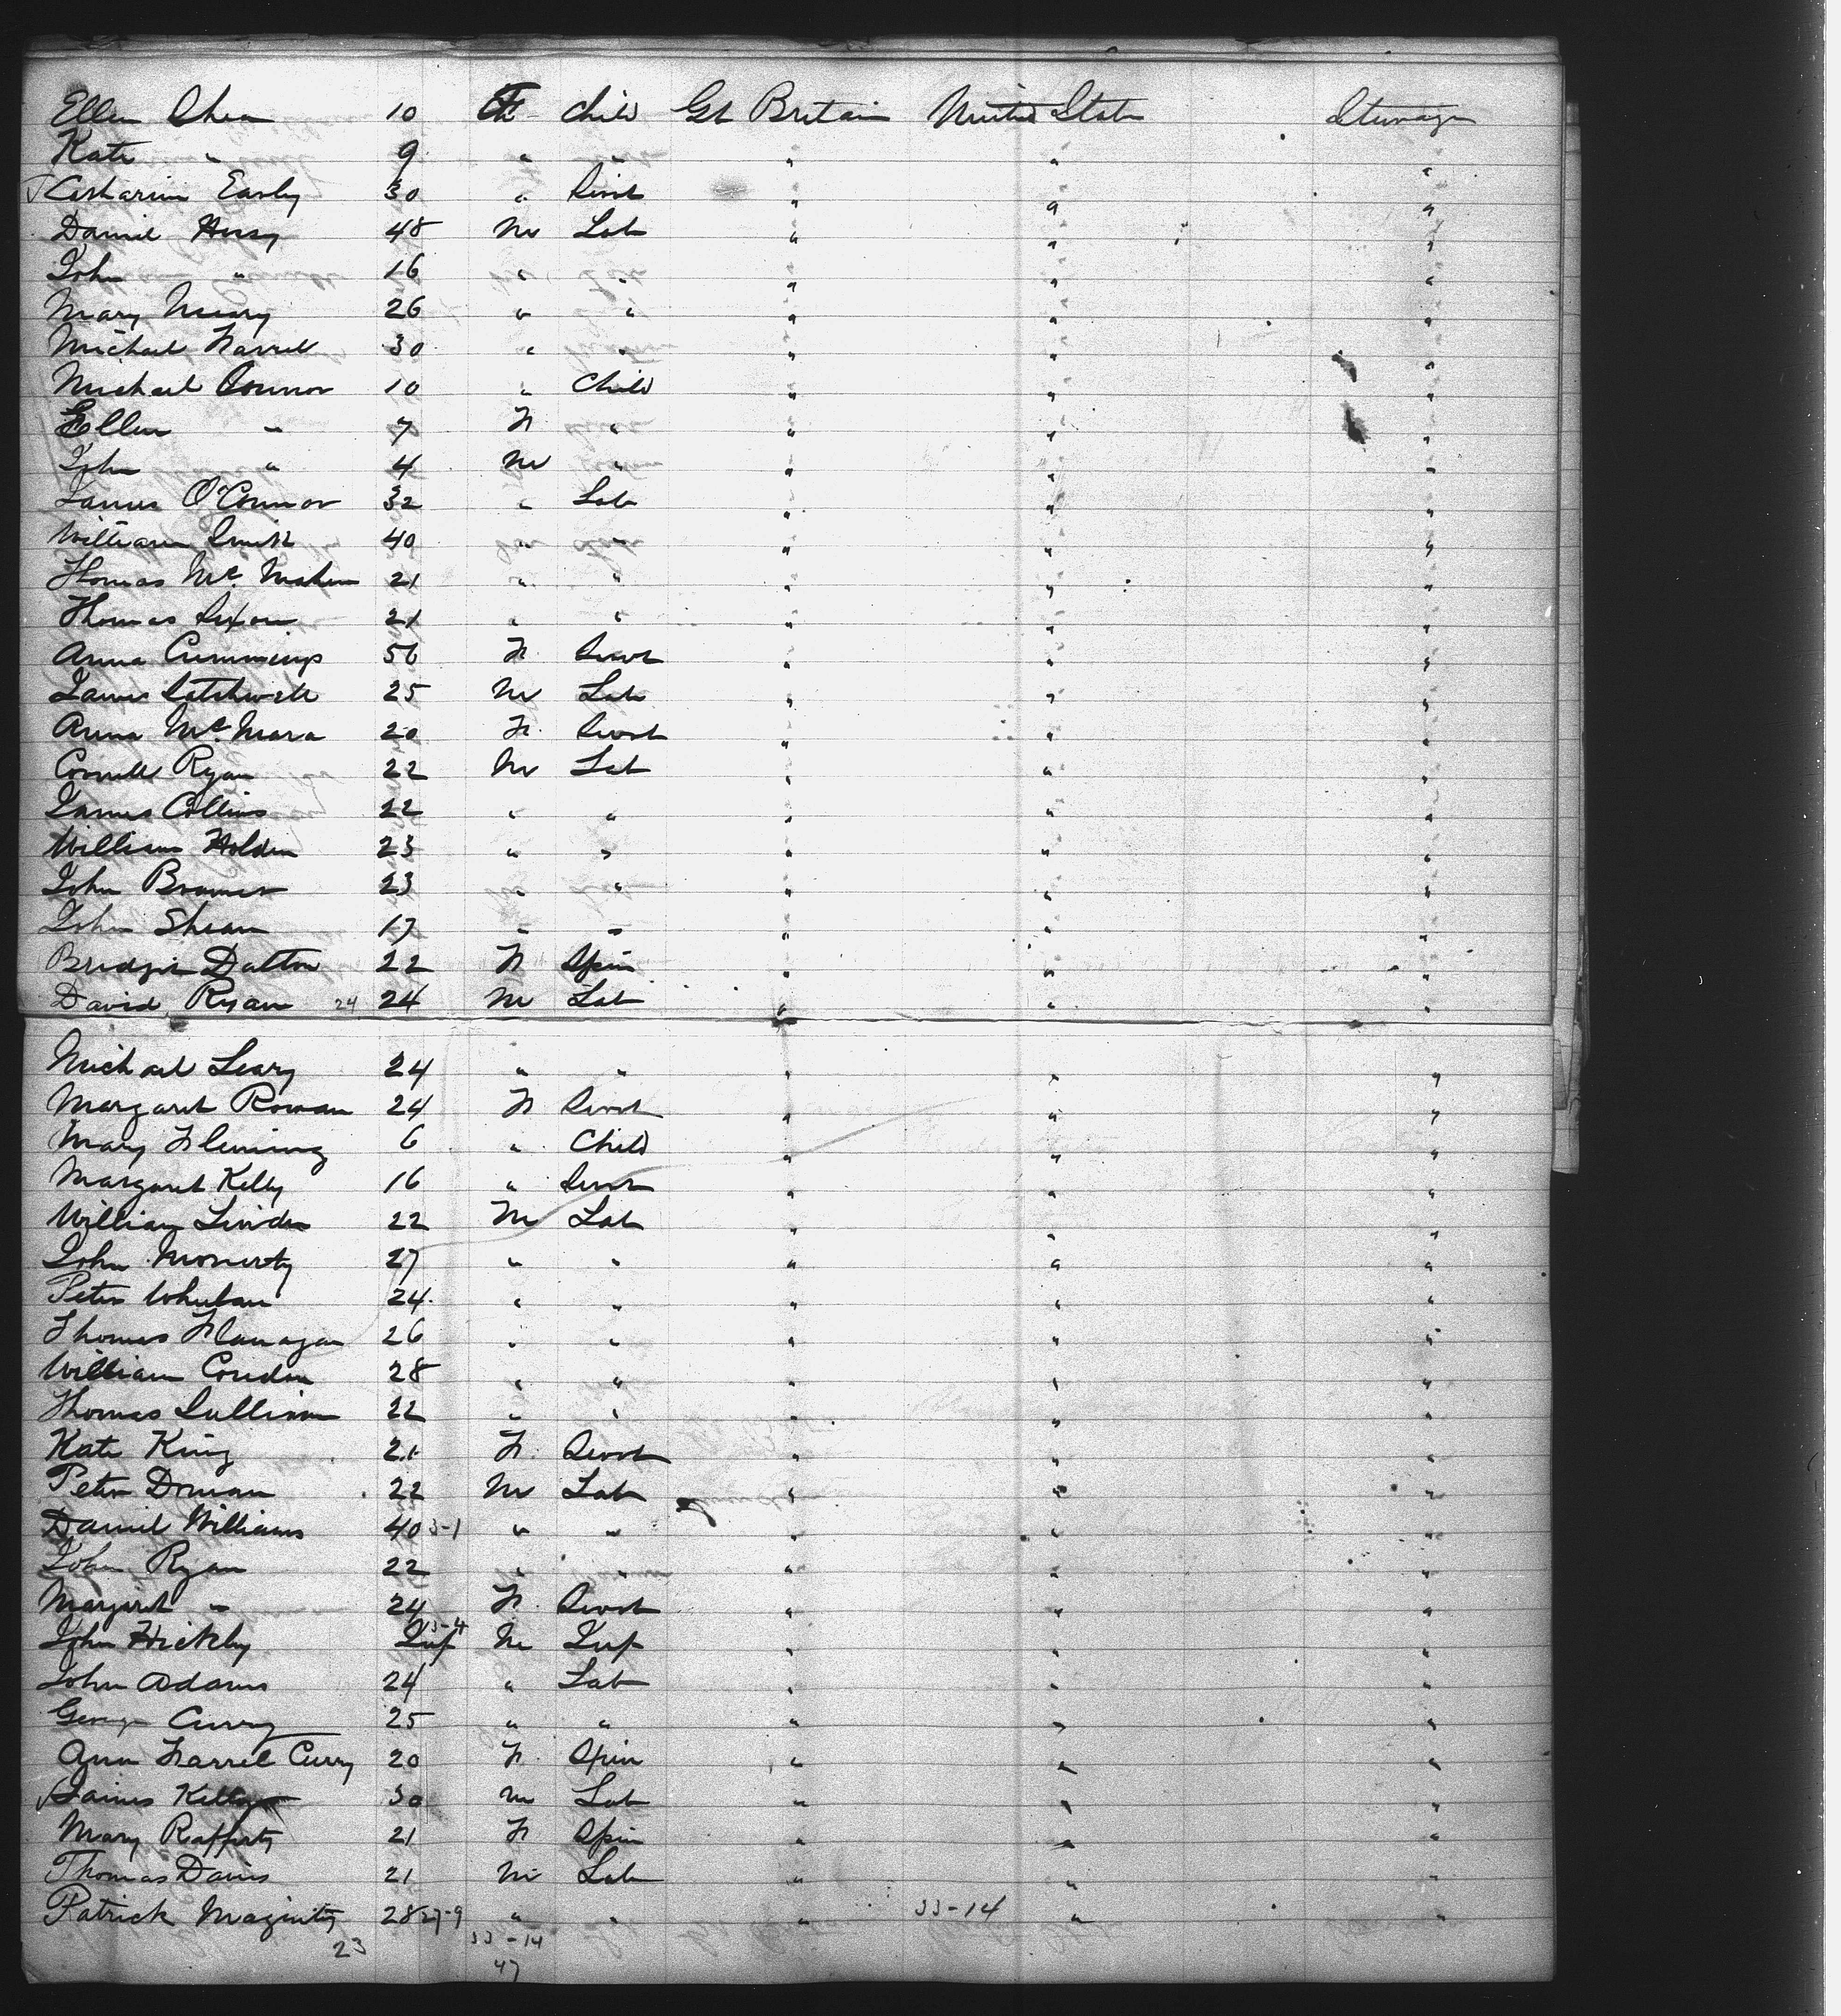 Ellen Shea 10 F Child Gt Britain United State Steerage
Kate " 9 " " " " "
Catharine Early 30 " Servt " " "
Daniel Hussy 48 M Lab " " "
John " 16 " " " " "
Mary 26 " " " " "
Michael Farrell 30 " " " " "
Michael Connor 10 " Child " " "
Ellen " 7 F " " " "
John " 4 M " " " "
James O'Connor 32 " Lab " " "
William Smith 40 " " " " "
Thomas Mc Mahon 21 " " " " "
Thomas 21 " " " " "
Anna Cummings 50 F Servt " " "
James 25 M Lab " " "
Anna Mc Mara 20 F Servt " " "
Connell Ryan 22 M Lab " " "
James Collins 22 " " " " "
William Holden 23 " " " " "
John 23 " " " " "
John Shean 17 " " " " "
Bridget Dalton 22 F Spin " " "
David Ryan 24 24 M Lab " " "
Michael Leary 24 " " " " "
Margaret Rowan 24 F Servt " " "
Mary Fleming 6 " Child " " "
Margaret Kelly 16 " Servt " " "
William Linden 22 M Lab " " "
John Moriarty 27 " " " " "
Peter Whelan 24 " " " " "
Thomas Flanagan 26 " " " " "
William Condon 28 " " " " "
Thomas Sullivan 22 " " " " "
Kate King 21 F Servt " " "
Peter Dornan 22 M Lab " " "
Daniel Williams 40 5-1 " " " " "
John Ryan 22 " " " " "
Margaret " 24 F Servt " " "
John Hickby Inf M Inf " " "
John Adams 24 " Lab " " "
George Curry 25 " " " " "
Ann Farrel Curry 20 F Spin " " "
James Kelly 30 M Lab " " "
Mary Rafferty 21 F Spin " " "
Thomas Davis 21 M Lab " " "
Patrick Maginity 28 27-9 " " " 33-14 " "
23 33-14
47